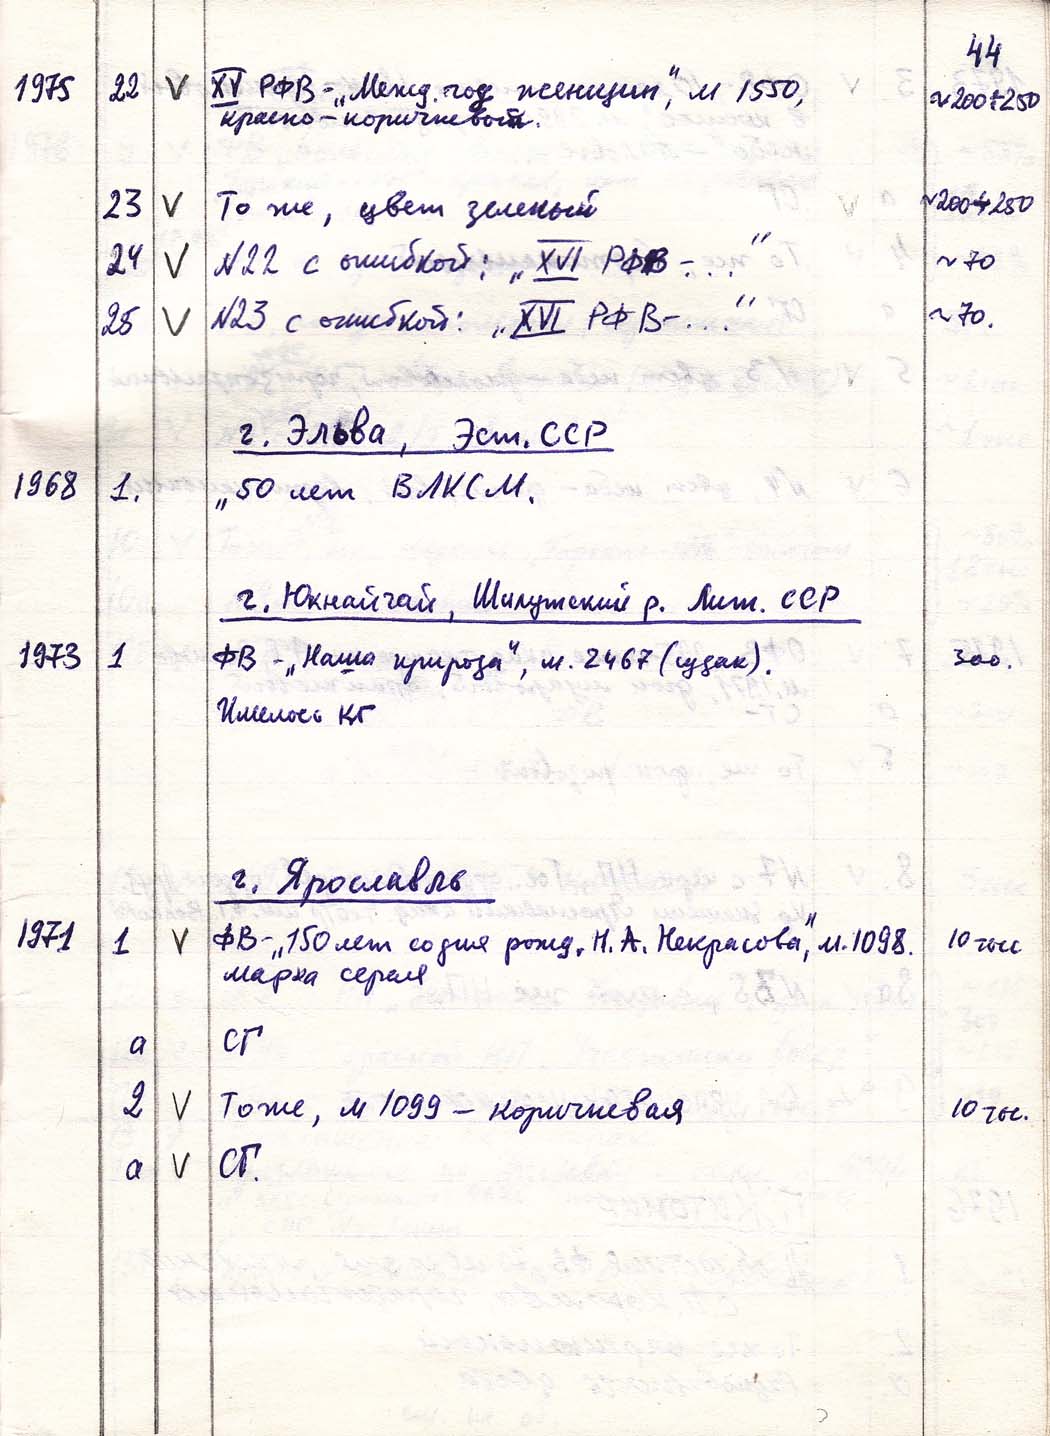 44
1975 22 V XV РФВ-„Межд. год женщин", м 1550, ~200+250
красно-коричневый.
23 V То же, цвет зеленый ~200+250
24 V N22 с ошибкой: „XVI РФВ-..." ~70
25 V N23 с ошибкой: „XVI РФВ-..." ~70.
г. Эльва, Эст. ССР
1968 1. „50 лет ВЛКСМ.
г. Юкнайчай, Шилутский р. Лит. ССР
1973 1 ФВ-„Наша природа", м. 2467 (судак). 300.
Имелось КГ
г. Ярославль
1971 1 V ФВ-„150 лет со дня рожд. Н.А. Некрасова", м. 1098. 10 тыс
марка серая
а СГ
2 V То же, м 1099 - коричневая 10 тыс.
а V СГ.